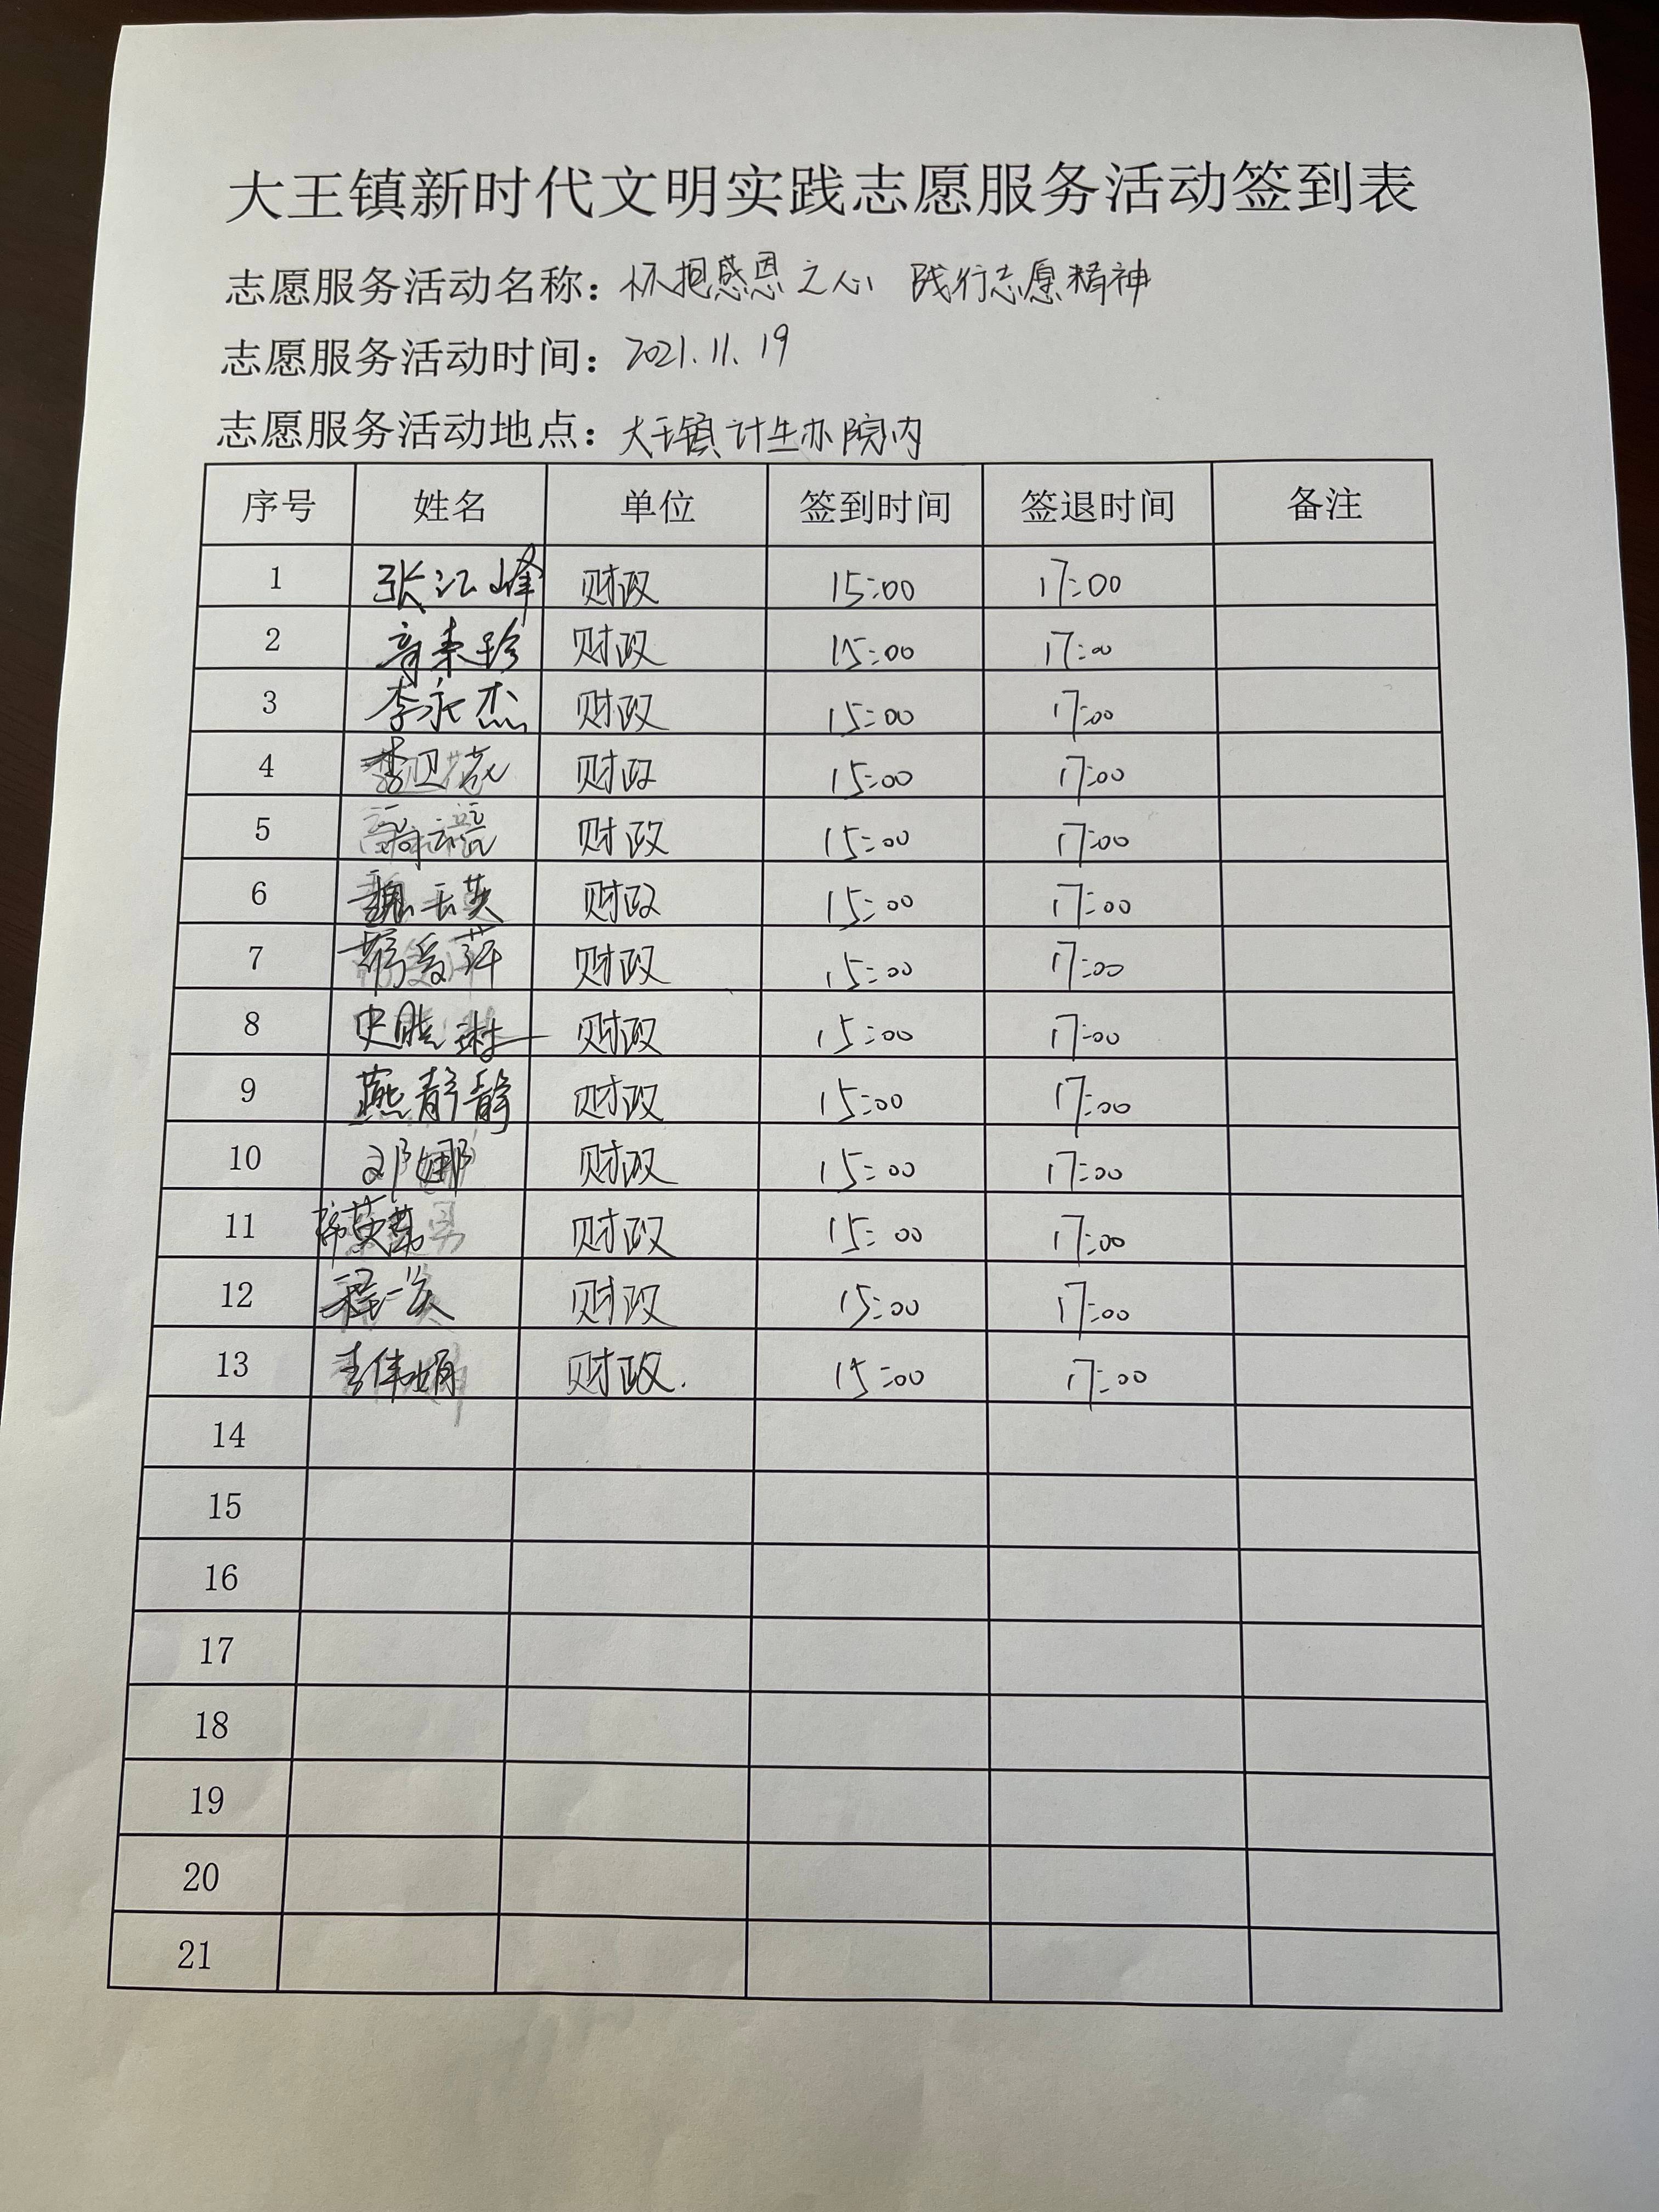 大王镇新时代文明实践志愿服务活动签到表
志愿服务活动名称：怀抱感恩之心 践行志愿精神
志愿服务活动时间：2021.11.19
志愿服务活动地点：大王镇计生办院内
序号 姓名 单位 签到时间 签退时间 备注
1 张江峰 财政 15:00 17:00
2 财政 15:00 17:00
3 李永杰 财政 15:00 17:00
4 李卫花 财政 15:00 17:00
5 财政 15:00 17:00
6 魏玉英 财政 15:00 17:00
7 韩爱萍 财政 15:00 17:00
8 史晓琳 财政 15:00 17:00
9 燕静静 财政 15:00 17:00
10 邓娜 财政 15:00 17:00
11 财政 15:00 17:00
12 财政 15:00 17:00
13 李伟娟 财政. 15:00 17:00
14
15
16
17
18
19
20
21